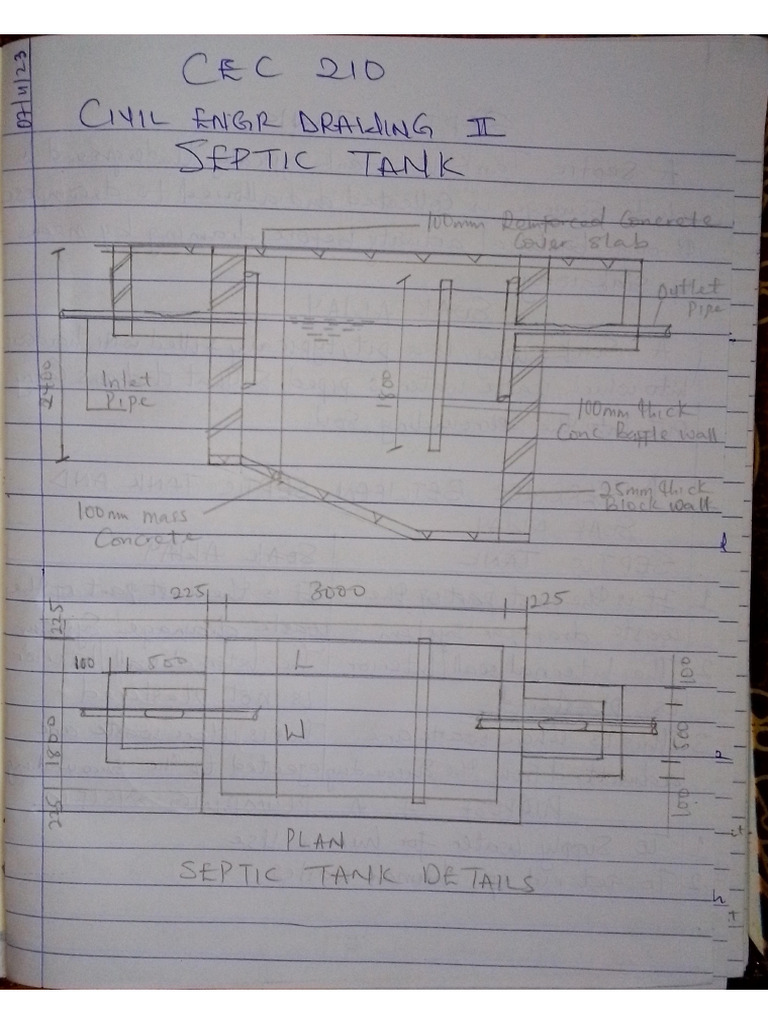 07/11/23
CEC 210
CIVIL ENGR DRAWING II
SEPTIC TANK
100mm Reinforced Concrete
Cover slab
Outlet
Pipe
2400
Inlet
Pipe
1800
100mm thick
Conc Baffle wall
25mm thick
Block wall
100mm mass
Concrete
225
3000
225
225
100
500
L
100
W
1800
500
225
100
PLAN
SEPTIC TANK DETAILS